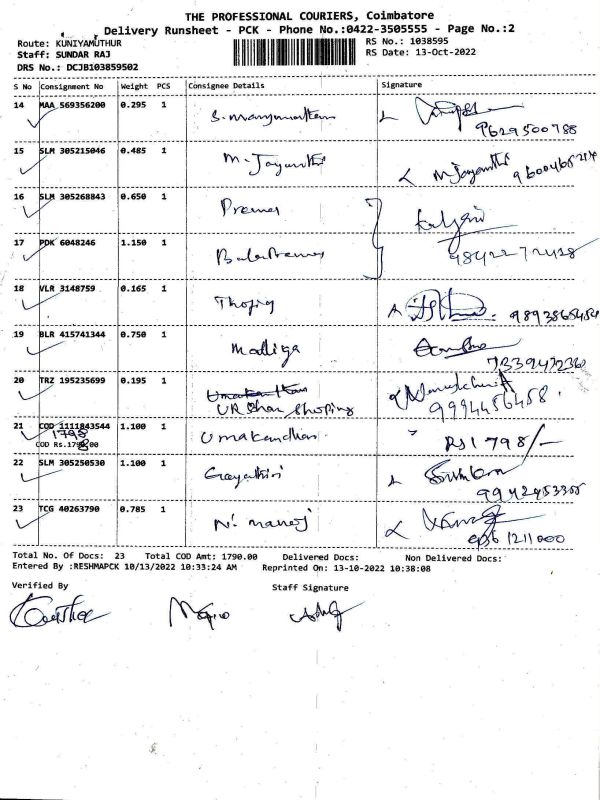 THE PROFESSIONAL COURIERS, Coimbatore
Delivery Runsheet - PCK - Phone No.:0422-3505555 - Page No.:2
Route: KUNIYAMUTHUR
RS No.: 1038595
Staff: SUNDAR RAJ
RS Date: 13-Oct-2022
DRS No.: DCJB103859502
S No Consignment No Weight PCS Consignee Details Signature
14 MAA 569356200 0.295 1
9629500788
15 SLM 305215046 0.485 1 M. Jayanthi M Jayanthi
16 SLM 305268843 0.650 1 Premes
17 PDK 6048246 1.150 1 BalaPremes
18 VLR 3148759 0.165 1
9893865454
19 BLR 415741344 0.750 1 Malliga
20 TRZ 195235699 0.195 1 Umakanthan
UR Shan Shoping 9994456458
21 COD 1111843544 1.100 1 Umakandhan RS 1798/-
1798
COD Rs.1790.00
22 SLM 305250530 1.100 1 Gayathiri
23 TCG 40263790 0.785 1 N. manoj
Total No. Of Docs: 23 Total COD Amt: 1790.00 Delivered Docs: Non Delivered Docs:
Entered By :RESHMAPCK 10/13/2022 10:33:24 AM Reprinted On: 13-10-2022 10:38:08
Verified By Staff Signature